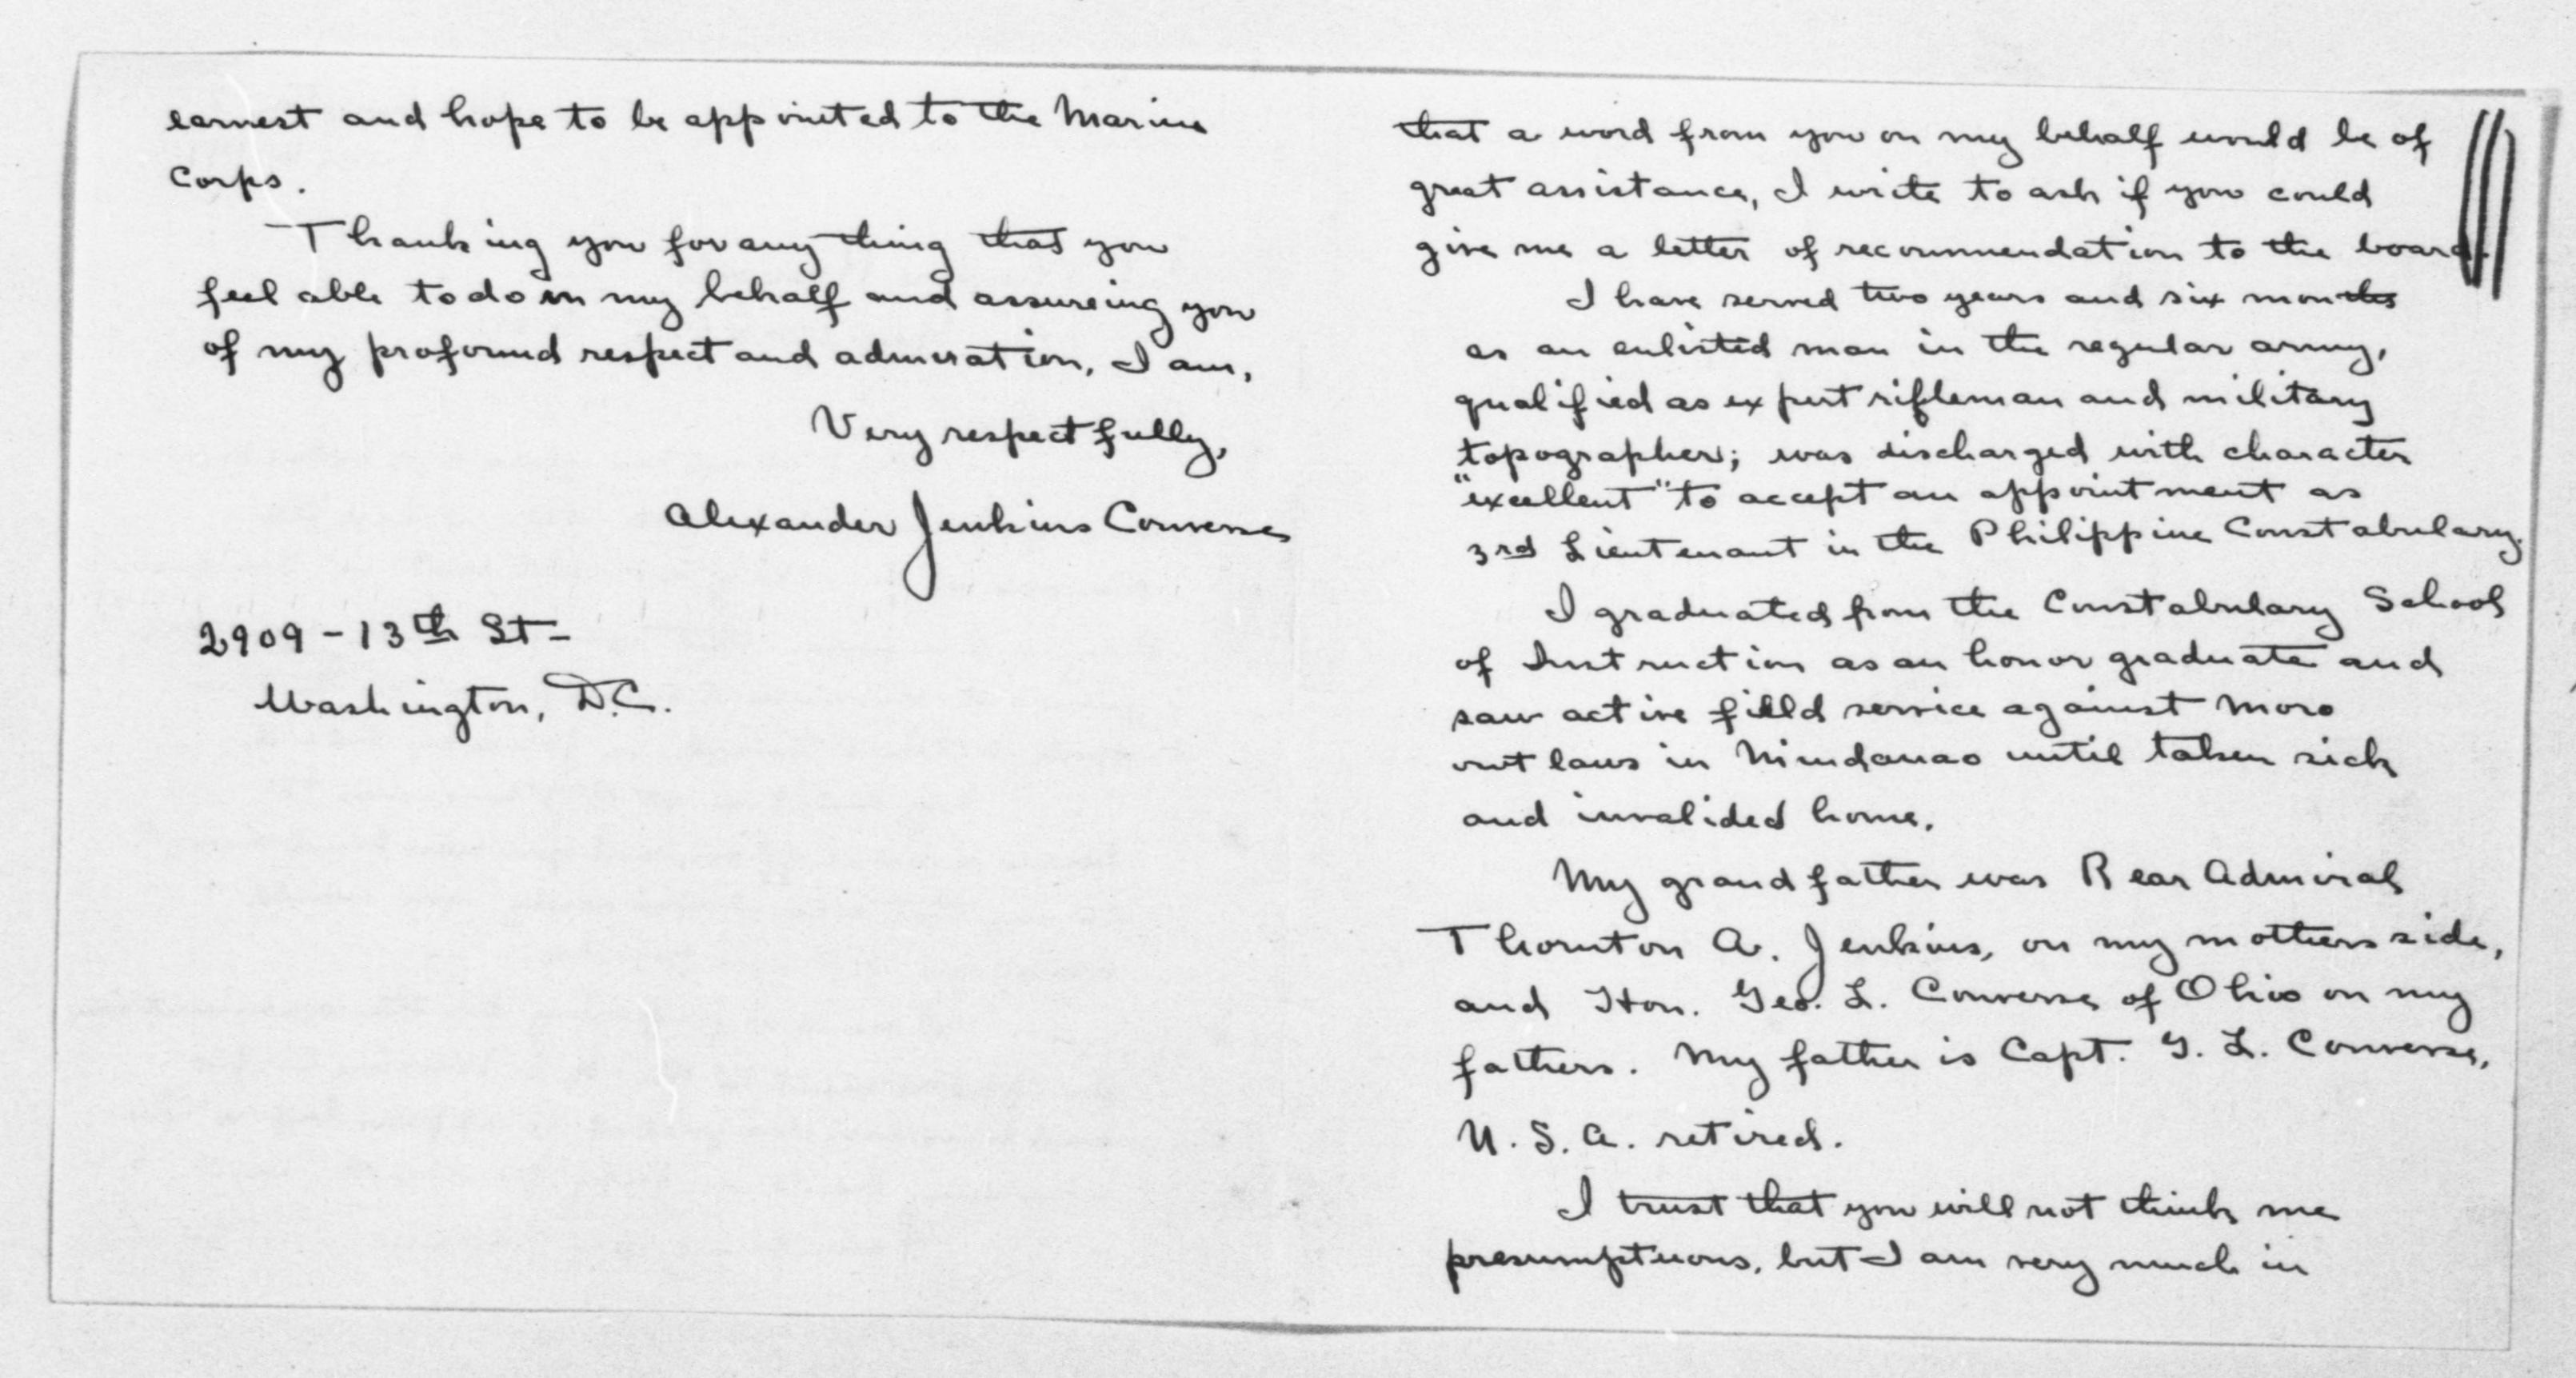 that a word from you on my behalf would be of
great assistance, I write to ask if you could
give me a letter of recommendation to the board.
I have served two years and six months
as an enlisted man in the regular army,
qualified as expert rifleman and military
topographer; was discharged with character
"excellent" to accept an appointment as
3rd Lieutenant in the Philippine Constabulary.
I graduated from the Constabulary School
of Instruction as an honor graduate and
saw active field service against Moro
outlaws in Mindanao until taken sick
and invalided home.
My grandfather was Rear Admiral
Thornton A. Jenkins, on my mothers side,
and Hon. Geo. L. Converse of Ohio on my
fathers. My father is Capt. G. L. Converse,
U. S. A. retired.
I trust that you will not think me
presumptuous, but I am very much in
earnest and hope to be appointed to the Marine
Corps.
Thanking you for anything that you
feel able to do in my behalf and assureing you
of my profound respect and admiration, I am,
Very respectfully,
Alexander Jenkins Converse
2909 - 13th St -
Washington, D.C.